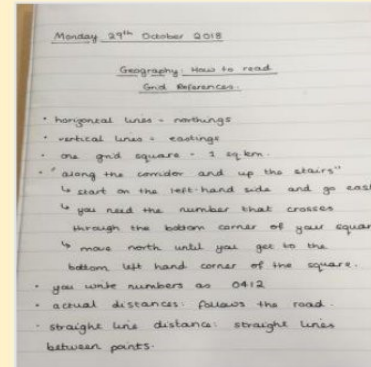 Monday 29th October 2018
Geography: How to read
Grid References.
• horizontal lines - northings
• vertical lines - eastings
• one grid square - 1 sq km.
• "along the corridor and up the stairs"
↳ start on the left-hand side and go east
↳ you need the number that crosses
through the bottom corner of your square
↳ move north until you get to the
bottom left hand corner of the square.
• you write numbers as 0412
• actual distances: follows the road.
• straight line distance: straight lines
between points.